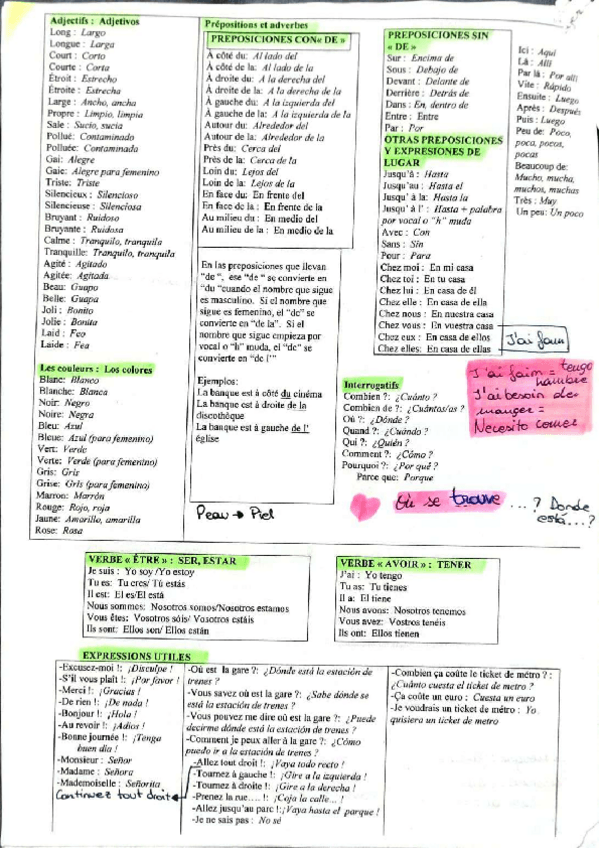 Adjectifs : Adjetivos
Long : Largo
Longue : Larga
Court : Corto
Courte : Corta
Étroit : Estrecho
Étroite : Estrecha
Large : Ancho, ancha
Propre : Limpio, limpia
Sale : Sucio, sucia
Pollué: Contaminado
Polluée: Contaminada
Gai: Alegre
Gaie: Alegre para femenino
Triste: Triste
Silencieux : Silencioso
Silencieuse : Silenciosa
Bruyant : Ruidoso
Bruyante : Ruidosa
Calme : Tranquilo, tranquila
Tranquille: Tranquilo, tranquila
Agité : Agitado
Agitée: Agitada
Beau: Guapo
Belle: Guapa
Joli : Bonito
Jolie : Bonita
Laid : Feo
Laide : Fea
Les couleurs : Los colores
Blanc: Blanco
Blanche: Blanca
Noir: Negro
Noire: Negra
Bleu: Azul
Bleue: Azul (para femenino)
Vert: Verde
Verte: Verde (para femenino)
Gris: Gris
Grise: Gris (para femenino)
Marron: Marrón
Rouge: Rojo, roja
Jaune: Amarillo, amarilla
Rose: Rosa
Prépositions et adverbes
PREPOSICIONES CON« DE »
À côté du: Al lado del
À côté de la: Al lado de la
À droite du: A la derecha del
À droite de la: A la derecha de la
À gauche du: A la izquierda del
À gauche de la: A la izquierda de la
Autour du: Alrededor del
Autour de la: Alrededor de la
Près du: Cerca del
Près de la: Cerca de la
Loin du: Lejos del
Loin de la: Lejos de la
En face du: En frente del
En face de la : En frente de la
Au milieu du : En medio del
Au milieu de la : En medio de la
En las preposiciones que llevan
"de ", ese "de " se convierte en
"du "cuando el nombre que sigue
es masculino. Si el nombre que
sigue es femenino, el "de" se
convierte en "de la". Si el
nombre que sigue empieza por
vocal o "h" muda, el "de" se
convierte en "de l'"
Ejemplos:
La banque est à côté du cinéma
La banque est à droite de la
discothèque
La banque est à gauche de l'
église
Peau → Piel
PREPOSICIONES SIN
« DE »
Sur : Encima de
Sous : Debajo de
Devant : Delante de
Derrière : Detrás de
Dans : En, dentro de
Entre : Entre
Par : Por
OTRAS PREPOSICIONES
Y EXPRESIONES DE
LUGAR
Jusqu'à : Hasta
Jusqu'au : Hasta el
Jusqu' à la: Hasta la
Jusqu' à l' : Hasta + palabra
por vocal o "h" muda
Avec : Con
Sans : Sin
Pour : Para
Chez moi : En mi casa
Chez toi : En tu casa
Chez lui : En casa de él
Chez elle : En casa de ella
Chez nous : En nuestra casa
Chez vous : En vuestra casa
Chez eux : En casa de ellos
Chez elles: En casa de ellas
Ici : Aquí
Là : Allí
Par là : Por allí
Vite : Rápido
Ensuite : Luego
Après : Después
Puis : Luego
Peu de: Poco,
poca, pocos,
pocas
Beaucoup de:
Mucho, mucha,
muchos, muchas
Très : Muy
Un peu: Un poco
J'ai faim
J'ai faim = tengo
hambre
J'ai besoin de
manger =
Necesito comer
Interrogatifs
Combien ?: ¿Cuánto ?
Combien de ?: ¿Cuántos/as ?
Où ?: ¿Dónde ?
Quand ?: ¿Cuándo ?
Qui ?: ¿Quién ?
Comment ?: ¿Cómo ?
Pourquoi ?: ¿Por qué ?
Parce que: Porque
Où se trouve ...? Donde
está...?
VERBE « ÊTRE » : SER, ESTAR
Je suis : Yo soy /Yo estoy
Tu es: Tu eres/ Tú estás
Il est: El es/El está
Nous sommes: Nosotros somos/Nosotros estamos
Vous êtes: Vosotros sóis/ Vosotros estáis
Ils sont: Ellos son/ Ellos están
VERBE « AVOIR » : TENER
J'ai : Yo tengo
Tu as: Tu tienes
Il a: El tiene
Nous avons: Nosotros tenemos
Vous avez: Vostros tenéis
Ils ont: Ellos tienen
EXPRESSIONS UTILES
-Excusez-moi !: ¡Disculpe !
-S'il vous plaît !: ¡Por favor !
-Merci !: ¡Gracias !
-De rien !: ¡De nada !
-Bonjour !: ¡Hola !
-Au revoir !: ¡Adios !
-Bonne journée !: ¡Tenga
buen día !
-Monsieur : Señor
-Madame : Señora
-Mademoiselle : Señorita
Continuez tout droit
-Où est la gare ?: ¿Dónde está la estación de
trenes ?
-Vous savez où est la gare ?: ¿Sabe dónde se
está la estación de trenes ?
-Vous pouvez me dire où est la gare ?: ¿Puede
decirme dónde está la estación de trenes ?
-Comment je peux aller à la gare ?: ¿Cómo
puedo ir a la estación de trenes ?
-Allez tout droit !: ¡Vaya todo recto !
-Tournez à gauche !: ¡Gire a la izquierda !
-Tournez à droite !: ¡Gire a la derecha !
-Prenez la rue.... !: ¡Coja la calle... !
-Allez jusqu'au parc !:¡Vaya hasta el parque !
-Je ne sais pas : No sé
-Combien ça coûte le ticket de métro ? :
¿Cuánto cuesta el ticket de metro ?
-Ça coûte un euro : Cuesta un euro
-Je voudrais un ticket de métro : Yo
quisiera un ticket de metro